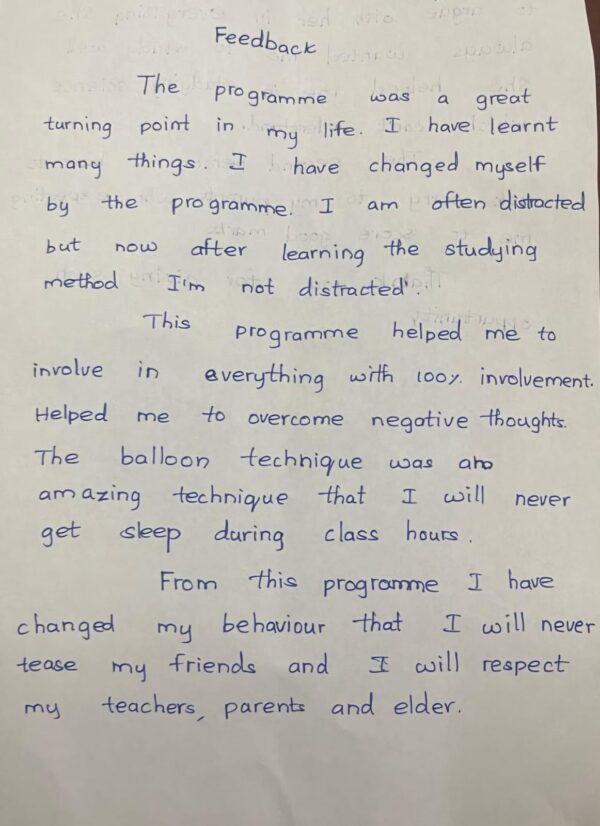 Feedback
The programme was a great
turning point in my life. I have learnt
many things. I have changed myself
by the programme. I am often distracted
but now after learning the studying
method I'm not distracted.
This programme helped me to
involve in everything with 100% involvement.
Helped me to overcome negative thoughts.
The balloon technique was an
amazing technique that I will never
get sleep during class hours.
From this programme I have
changed my behaviour that I will never
tease my friends and I will respect
my teachers, parents and elder.